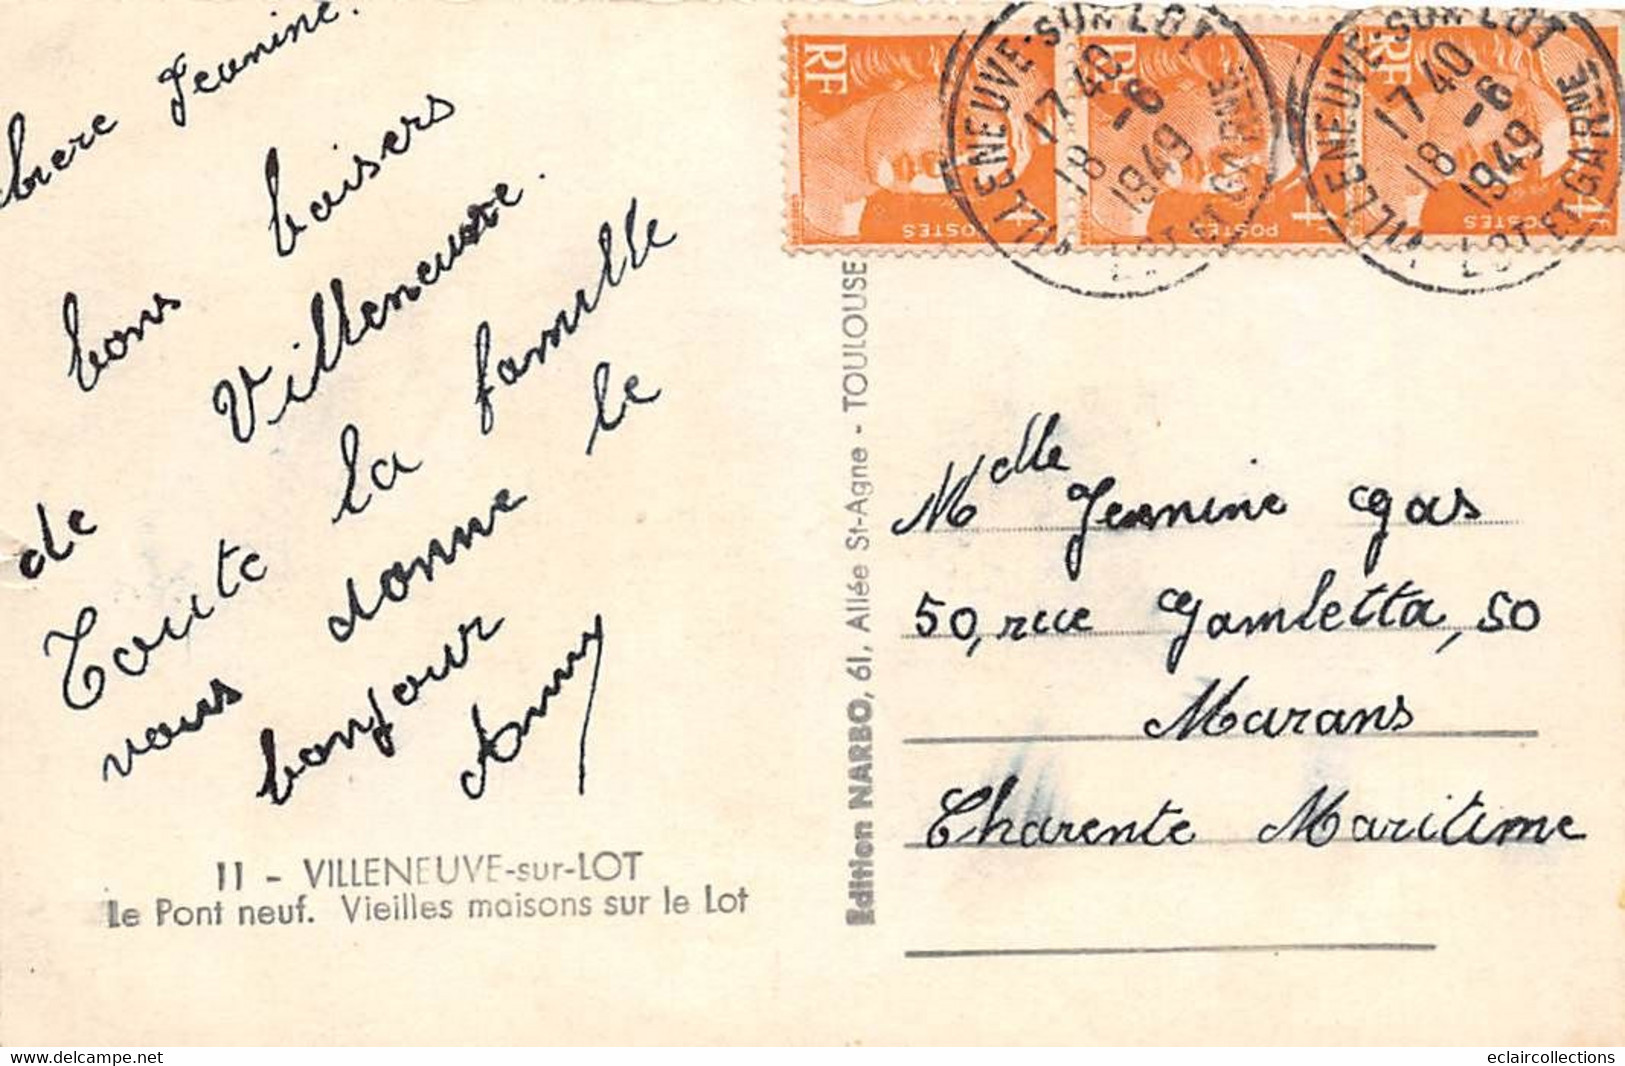 chere Jeanine.
bons baisers
de Villeneuve.
Toute la famille
vous donne le
bonjour
11 - VILLENEUVE-sur-LOT
Le Pont neuf. Vieilles maisons sur le Lot
Edition NARBO, 61, Allée St-Agne - TOULOUSE
RF
POSTES
4F
RF
POSTES
4F
RF
POSTES
4F
VILLENEUVE-SUR-LOT
17 40
18 -6
1949
LOT ET GARNE
VILLENEUVE-SUR-LOT
17 40
18 -6
1949
LOT ET GARNE
Mdlle Jeanine Gas
50, rue Gambetta, 50
Marans
Charente Maritime
eclaircollections